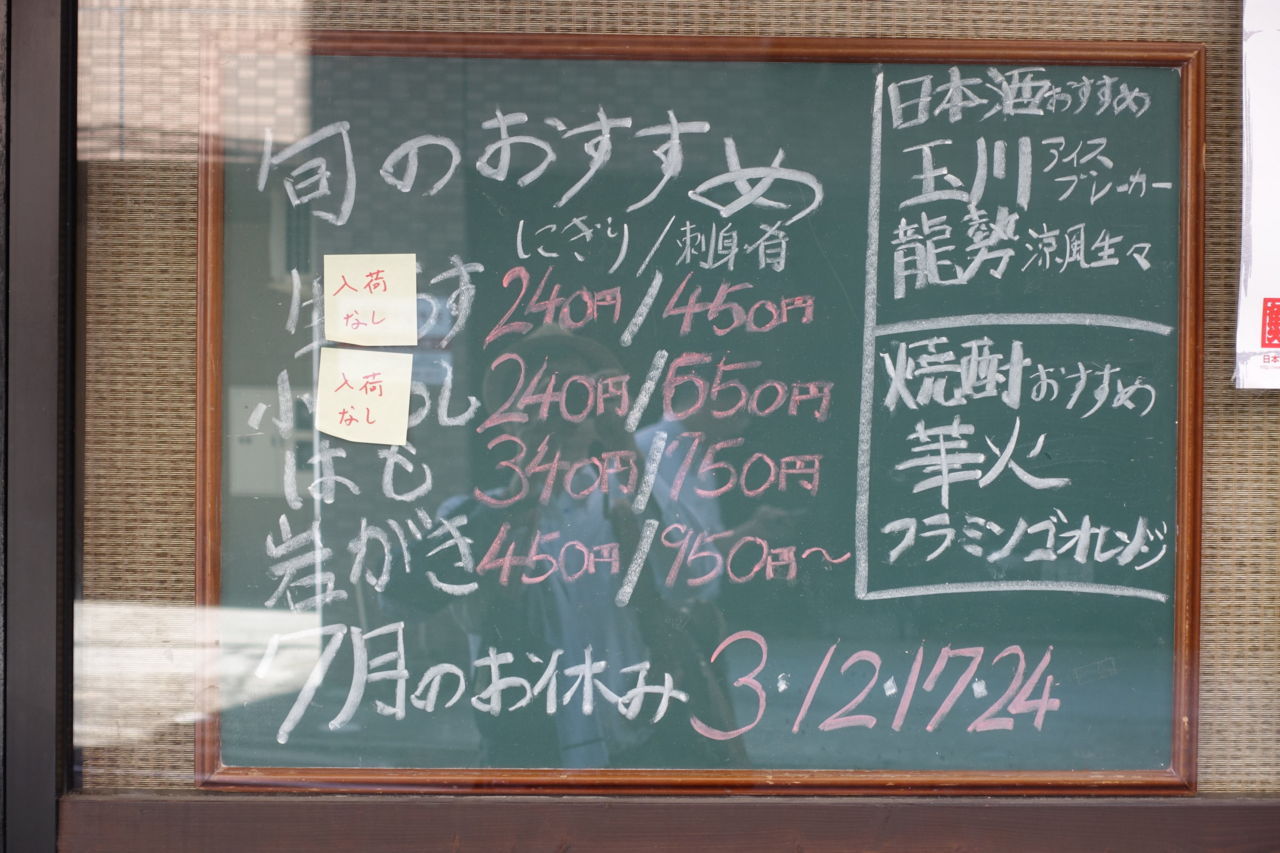 旬のおすすめ
にぎり/刺身・肴
生 す 240円/450円
入荷
なし
小 し 240円/650円
入荷
なし
はも 340円/750円
岩がき 450円/950円〜
7月のお休み 3・12・17・24
日本酒おすすめ
玉川 アイス
ブレーカー
龍勢 涼風生々
焼酎おすすめ
華火
フラミンゴオレンジ